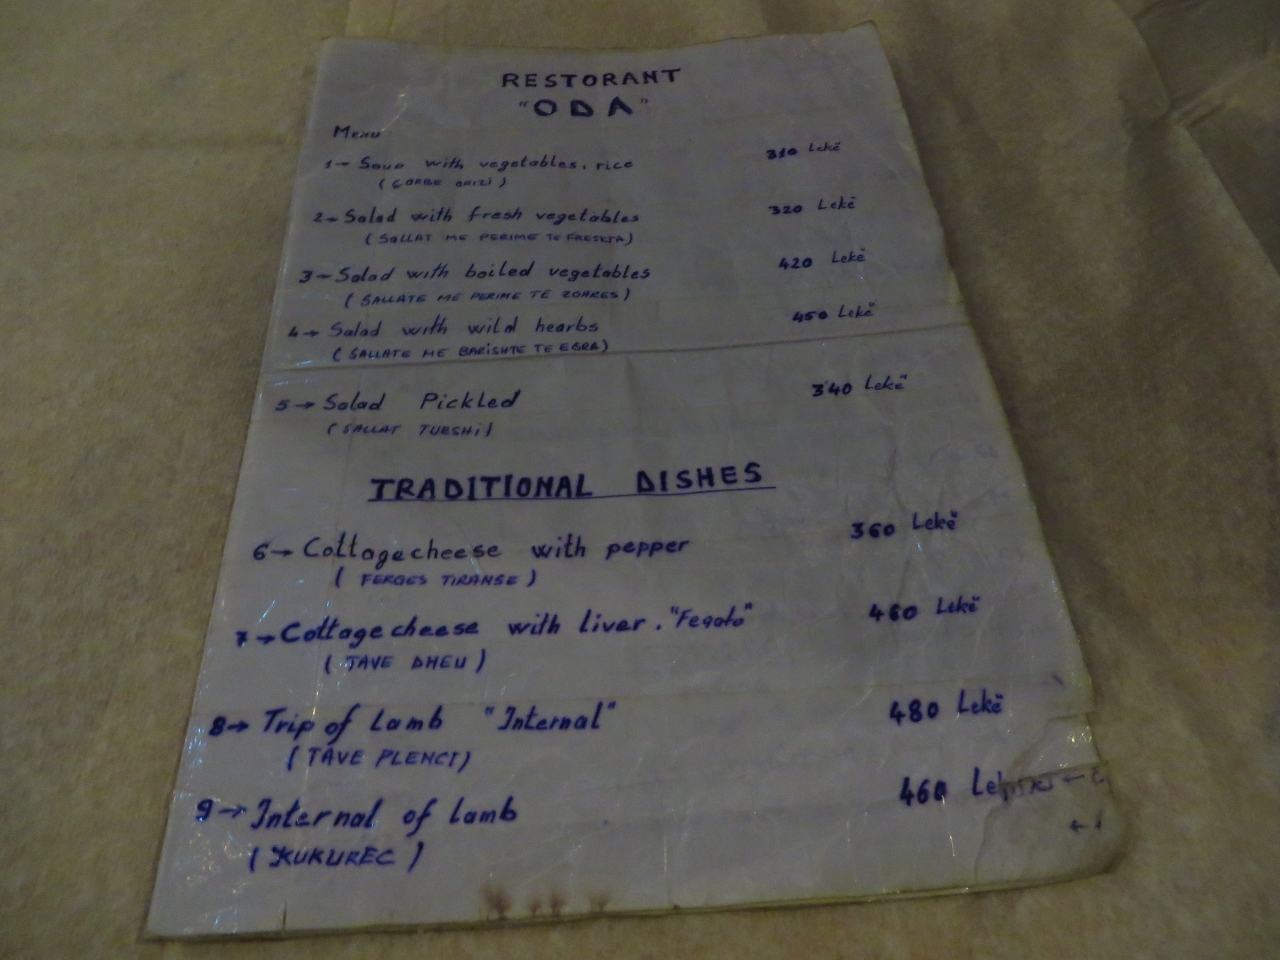 RESTORANT
"ODA"
Menu
1- Soup with vegetables, rice 310 Lekë
(ÇORBE ORIZI)
2- Salad with fresh vegetables 320 Lekë
(SALLAT ME PERIME TE FRESKTA)
3- Salad with boiled vegetables 420 Lekë
(SALLATE ME PERIME TE ZOARES)
4→ Salad with wild hearbs 450 Lekë
(SALLATE ME BARISHTE TE EGRA)
5→ Salad Pickled 340 Lekë
(SALLAT TURSHI)
TRADITIONAL DISHES
6→ Cottagecheese with pepper 360 Lekë
(FERGES TIRANSE)
7→ Cottagecheese with liver. "Fegato" 460 Lekë
(TAVE DHEU)
8→ Trip of Lamb "Internal" 480 Lekë
(TAVE PLENCI)
9→ Internal of Lamb 460
(KUKUREC)